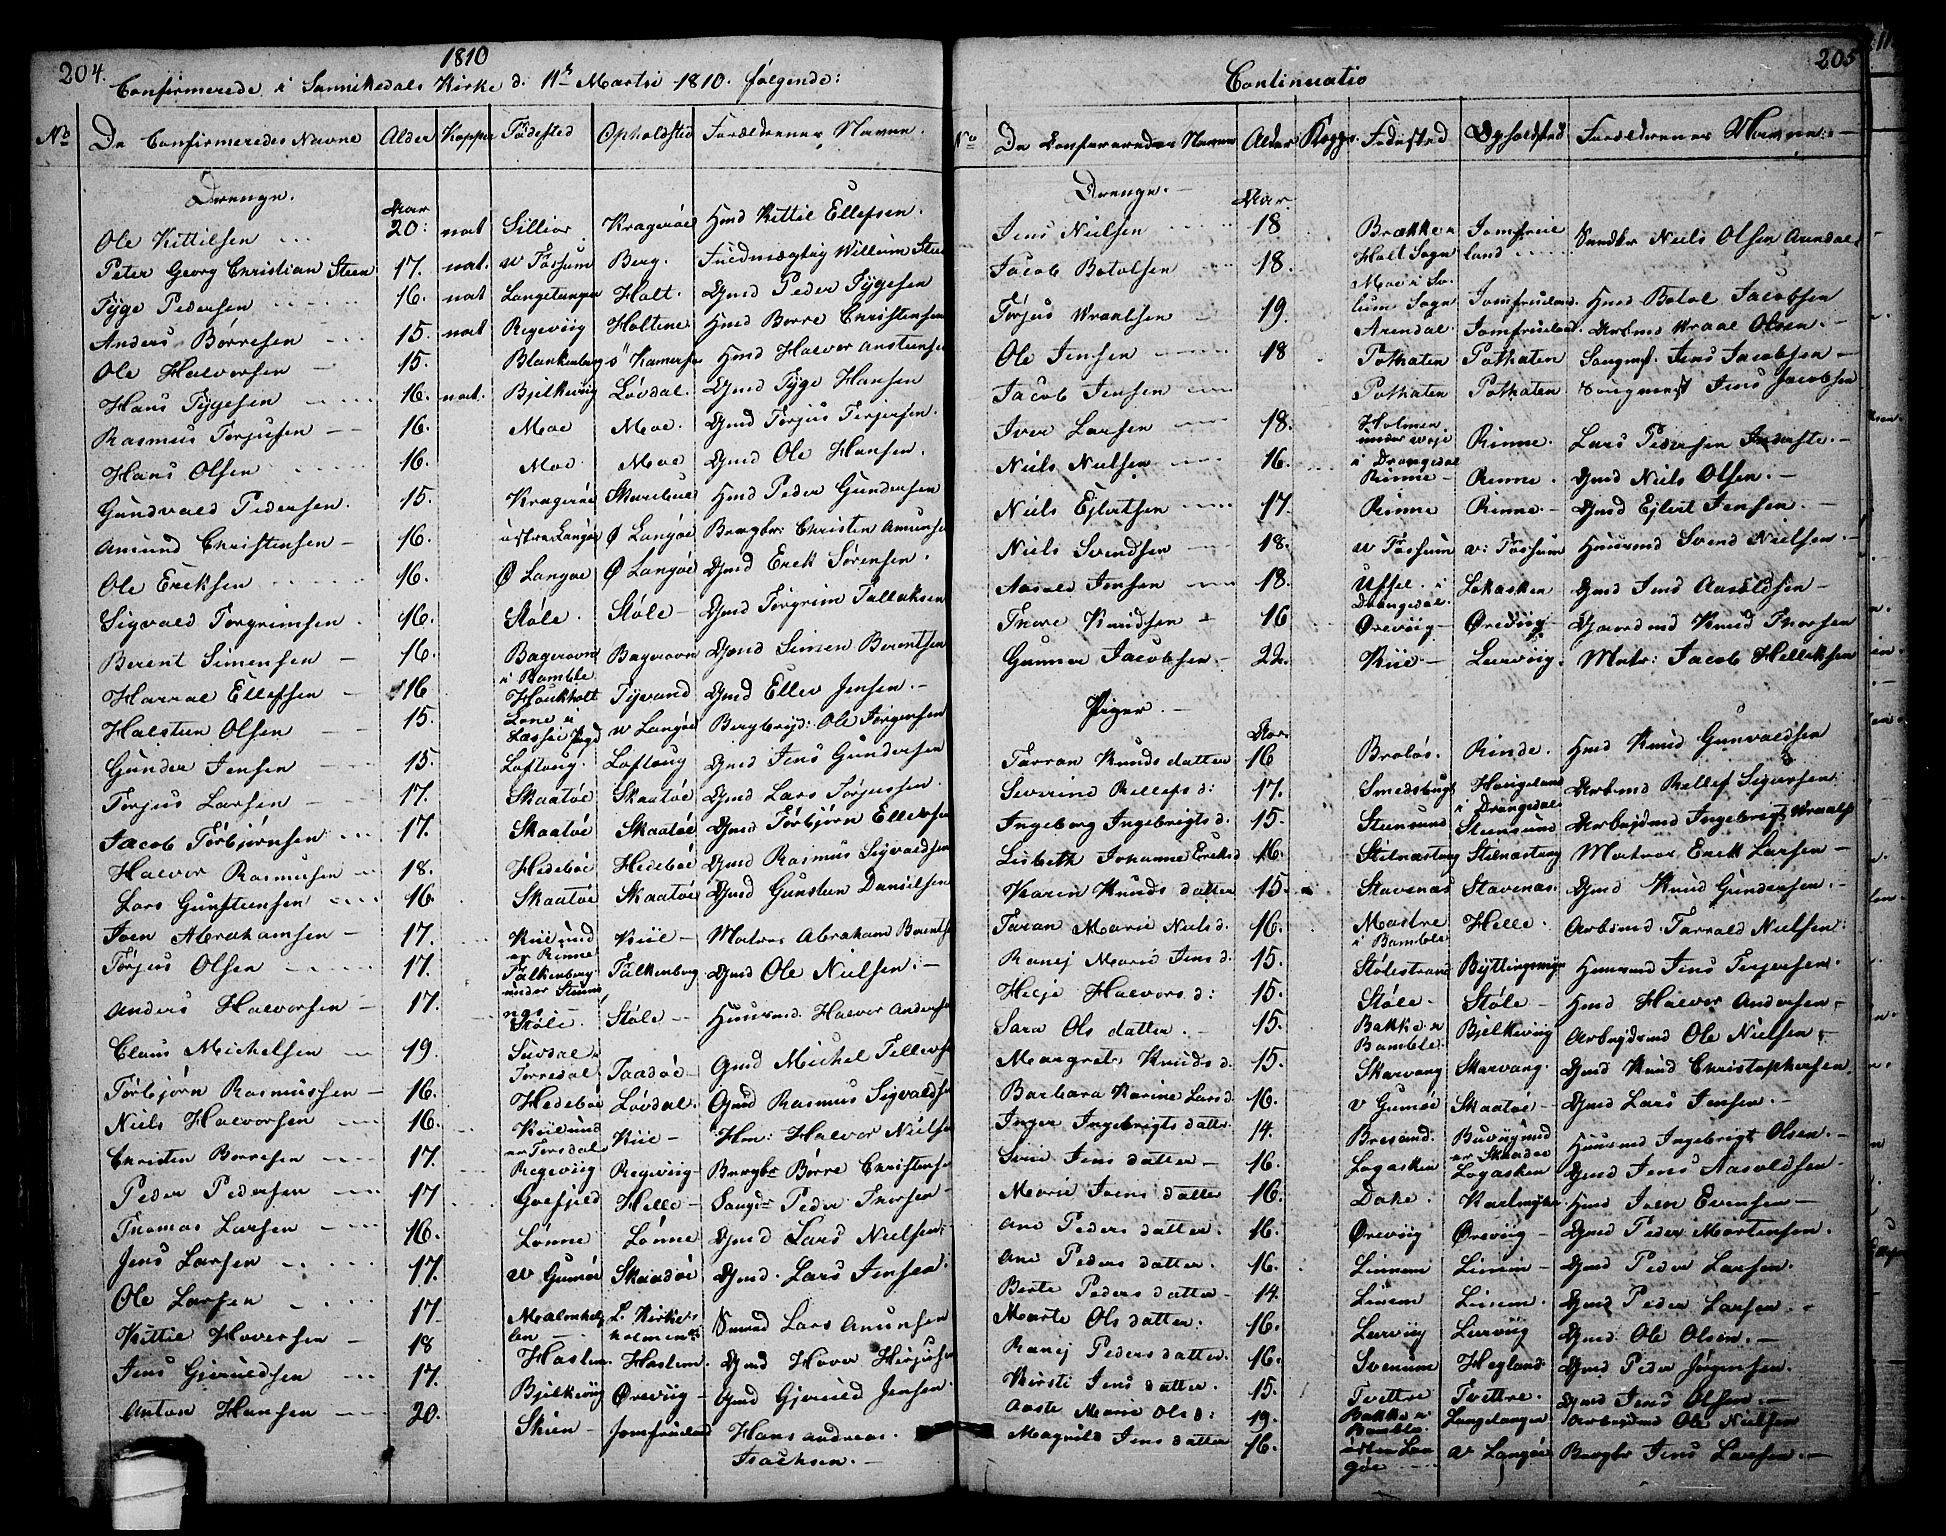 204.
1810
Confirmerede i Sannikedals Kirke d. 11te Martii 1810. følgende:
No De Confirmeredes Navne Alder Kopper Fødested Opholdsted Forældrenes Navne.
Drenge. Aar
Ole Kittilsen 20: nat Sillior Kragerøe Hmd Kittil Ellefsen.
Peter Georg Christian Steen 17. nat. v Tøssum Berg. Fuldmægtig Willum Steen
Tÿge Pedersen 16. nat Langetangen Holt. Gmd Peder Tÿgesen
Anders Børresen 15. nat Regeviig Holtene Hmd Børre Christensen
Ole Halvorsen 15. Blankenberg Hmd Halvor
Hans Tÿgesen 16. nat. Bjelkeviig Løvdal. Gmd Tÿge Hansen
Rasmus Torjusen 16. Moe Moe. Gmd Torjus Terjersen.
Hans Olsen 16. Moe Moe Gmd Ole Hansen.
Gundvald Pedersen. 15. Kragerøe Skarebue Hmd Peder Gundersen
Amund Christensen 16. østre Langøe Ø Langøe Bergbr: Christen Amunse
Ole Eriksen 16. Ø Langøe Ø Langøe Gmd Erek Sørensen.
Sigvald Torgrimsen. 16. Støle. Støle Gmd Torgrim Tallaksen
Berent Simensen 16. Bagerovn i Bamble Bagerovn Gmd Simen Berentsen
Harral Ellefsen 16 Houkholt Tÿvand Gmd Ellev Jensen.
Halsteen Olsen 15. v Langøe Bergbryd: Ole Jørgensen
Gunder Jensen 15. Loftoug. Loftoug Gmd Jens Gundersen
Torjus Larsen 17. Skaatøe Skaatøe Gmd Lars Torjussen.
Jacob Torbjørnsen 17. Skaatøe Skaatøe Gmd Torbjørn Ellevsen
Halvor Rasmusen 18. Hedebøe Hedebøe Gmd Rasmus Sigvaldsen
Lars Gunsteensen 16. Skaatøe Skaatøe Gmd Gunsteen Danielsen
Joen Abrahamsen 17. Kiil under Rinne Kiil Matros Abraham Berentse
Torjus Olsen 17. Falkenberg under Steens nes Falkenberg Gmd Ole Nielsen.
Anders Halvorsen 17. Støle. Støle Huusmd. Halvor Anderse
Claus Michelsen 19. Suvdal Torredal Taadøe Gmd Michel Tellevse
Torbjørn Rasmussen 16. Hedebøe Løvdal. Gmd Rasmus Sigvaldse
Niels Halvorsen 16. Kiil under Torsdal Kiil Hm: Halvor Nielse
Christen Børresen 17. Regeviig Regeviig Bergbr Børre Christense
Peder Pedersen 17 Goefjeld Helle Saugr Peder Thorsen
Thomas Larsen 16. Lønne Lønne Gmd Lars Nielsen.
Jens Larsen 17. v Gumøe Skaadøe Gmd. Lars Jensen.
Ole Larsen 17. Malmhol len L. Kirke holmen Smed Lars Amunsen
Kittil Haversen 18 Haslem. Haslem. Gmd Haver
Jens Gjeruldsen 17. Bjelkeviig Øreviig Gmd Gjeruld Jensen.
Anton Hansen 20. Skien Jomfrueland Hans andreas Isachsen.
205
Continuatio
No De Confirmeredes Navne Alder Kopper Fødested Opholdsted Forældrenes Navne:
Drenge. Aar.
Jens Nielsen 18 Brække i Holt Sogn Jomfrueland Niels Olsen Arendal.
Jacob Botolsen 18. Moe i Solum Sogn Jomfrueland. Hmd Botol Jacobsen
Torjus Wraalsen 19. Arendal. Jomfrueland. Arbmd Wraal Olsen.
Ole Jensen 18 Pothaten Pothaten Saugm. Jens Jacobsen
Jacob Jensen Pothaten Pothaten Saugmest Jens Jacobsen
Iver Larsen 18. Holmen under Voje i Drangedal Rinne. Lars Pedersen Inderste.
Niels Nielsen 16. Rinne Rinne. Gmd Niels Olsen.
Niels Ejlertsen 17. Rinne Rinne. Gmd Ejlert Jensen.
Niels Svendsen 18. v Tøssum v: Tøssum Huusmd Svend Nielsen.
Aasold Jensen 18. Ussel. i Drangedal. Lokasken Gmd Jens Aasoldsen
Thore Knudsen 16 Øreviig Øreviig Gaardmd Knud Thorsen
Gunner Jacobsen 22. Kiil Lerviig. Matr: Jacob Helleksen
Piger. Aar.
Tarran Knuds datter 16 Broløs. Rinde. Hmd Knud Gunvaldsen
Severine Rellefs d: 17. Smedsbugt Hougeland i Drangedal Arbmd Rellef Sigursen
Ingeborg Ingebrigts d. 15. Steensund Steensund Arbejdsmd Ingebrigt Wraals
Lisbeth Johanne Ereks d 16. Stilnæstang Stilnæstang Matros Erek Larsen
Karen Knuds datter 15. Stavenæs Stavenæs. Gmd Knud Gundersen.
Taran Marie Niels d. 16. Mastre i Bamble Helle. Arbsmd. Tarrald Nielsen:
Ranej Marie Jens d. 15. Stølestrand Huusmd Jens Terjersen.
Helje Halvors d: 15. Støle. Støle Hmd Halvor Andersen.
Sara Ols datter. 15. Bakke i Bamble Bjelkeviig Arbejdsmd Ole Nielsen.
Margrete Knuds d. 15. Skarvang Skarvang. Gmd Knud Christophersen.
Barbara Karine Lars d. 16. v Gumøe Skaatøe Gmd Lars Jensen.
Inger Ingebrigts datter. 14. Bresand. Buviig under Skaadøe Huusmd Ingebrigt Olsen.
Svie Jens datter 16. Logasken Logasken Gmd Jens Aasoldsen.
Marie Joens datter 16. Dake. Hmd Joen Evensen
Ane Peders datter. 16. Øreviig Øreviig Gmd Peder Mortensen.
Ane Peders datter. 16. Linnem Linnem Gmd Peder Larsen.
Berte Peders datter 14. Linem Linem. Gmd Peder Larsen.
Marte Ols datter. 16. Lerviig Lerviig Gmd. Ole Olsen.
Ranej Peders datter. 16. Svenum Hegland Gmd Peder Jørgensen.
Kirsti Jens datter. 15. Tveitre Tveitre. Gmd Jens Olsen.
Aaste Marie Ols d: 19. Bakke i Bamble Langetangen Arbejdsmd Ole Nielsen
Magnild Jens datter 16. østen Lan gøe v Langøe Bergbr Jens Larsen.